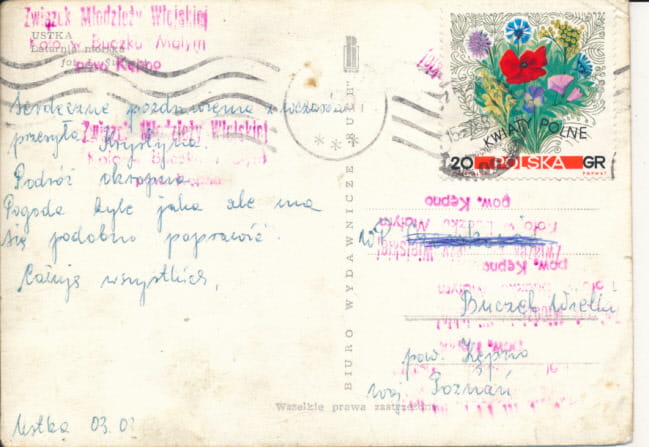 Związek Młodzieży Wiejskiej
Koło w Buczku Małym
pow. Kępno
USTKA
Latarnia morska
Serdeczne pozdrowienia z wczasów
przesyła Krystyna.
Związek Młodzieży Wiejskiej
Podróż okropna.
Pogoda byle jaka ale ma
się podobno poprawić.
Całuję wszystkich,
Ustka 03.0
BIURO WYDAWNICZE RUCH
Wszelkie prawa zastrzeżone
KWIATY POLNE
20 POLSKA GR
pow. Kępno
Koło w Buczku Małym
Związek Młodzieży Wiejskiej
pow. Kępno
Buczek Wielki
pow. Kępno
woj. Poznań